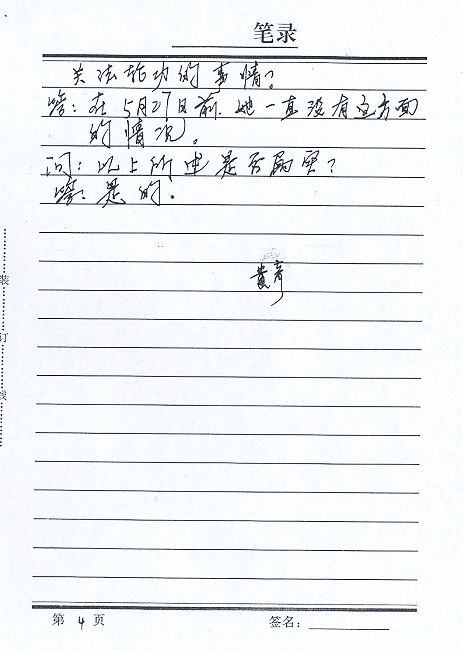 笔录
关法轮功的事情？
答：在5月27日前，她一直没有这方面
的情况。
问：以上所述是否属实？
答：是的。
黄彦
装
订
线
第 4 页
签名：